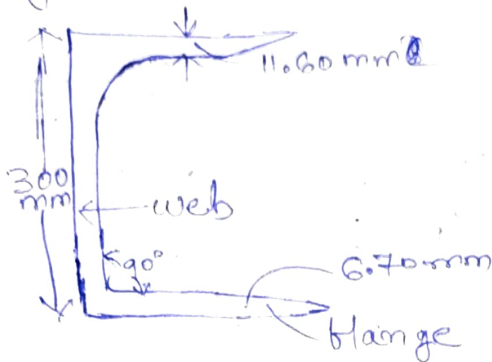 11.60 mm
300
mm
web
90°
6.70 mm
flange